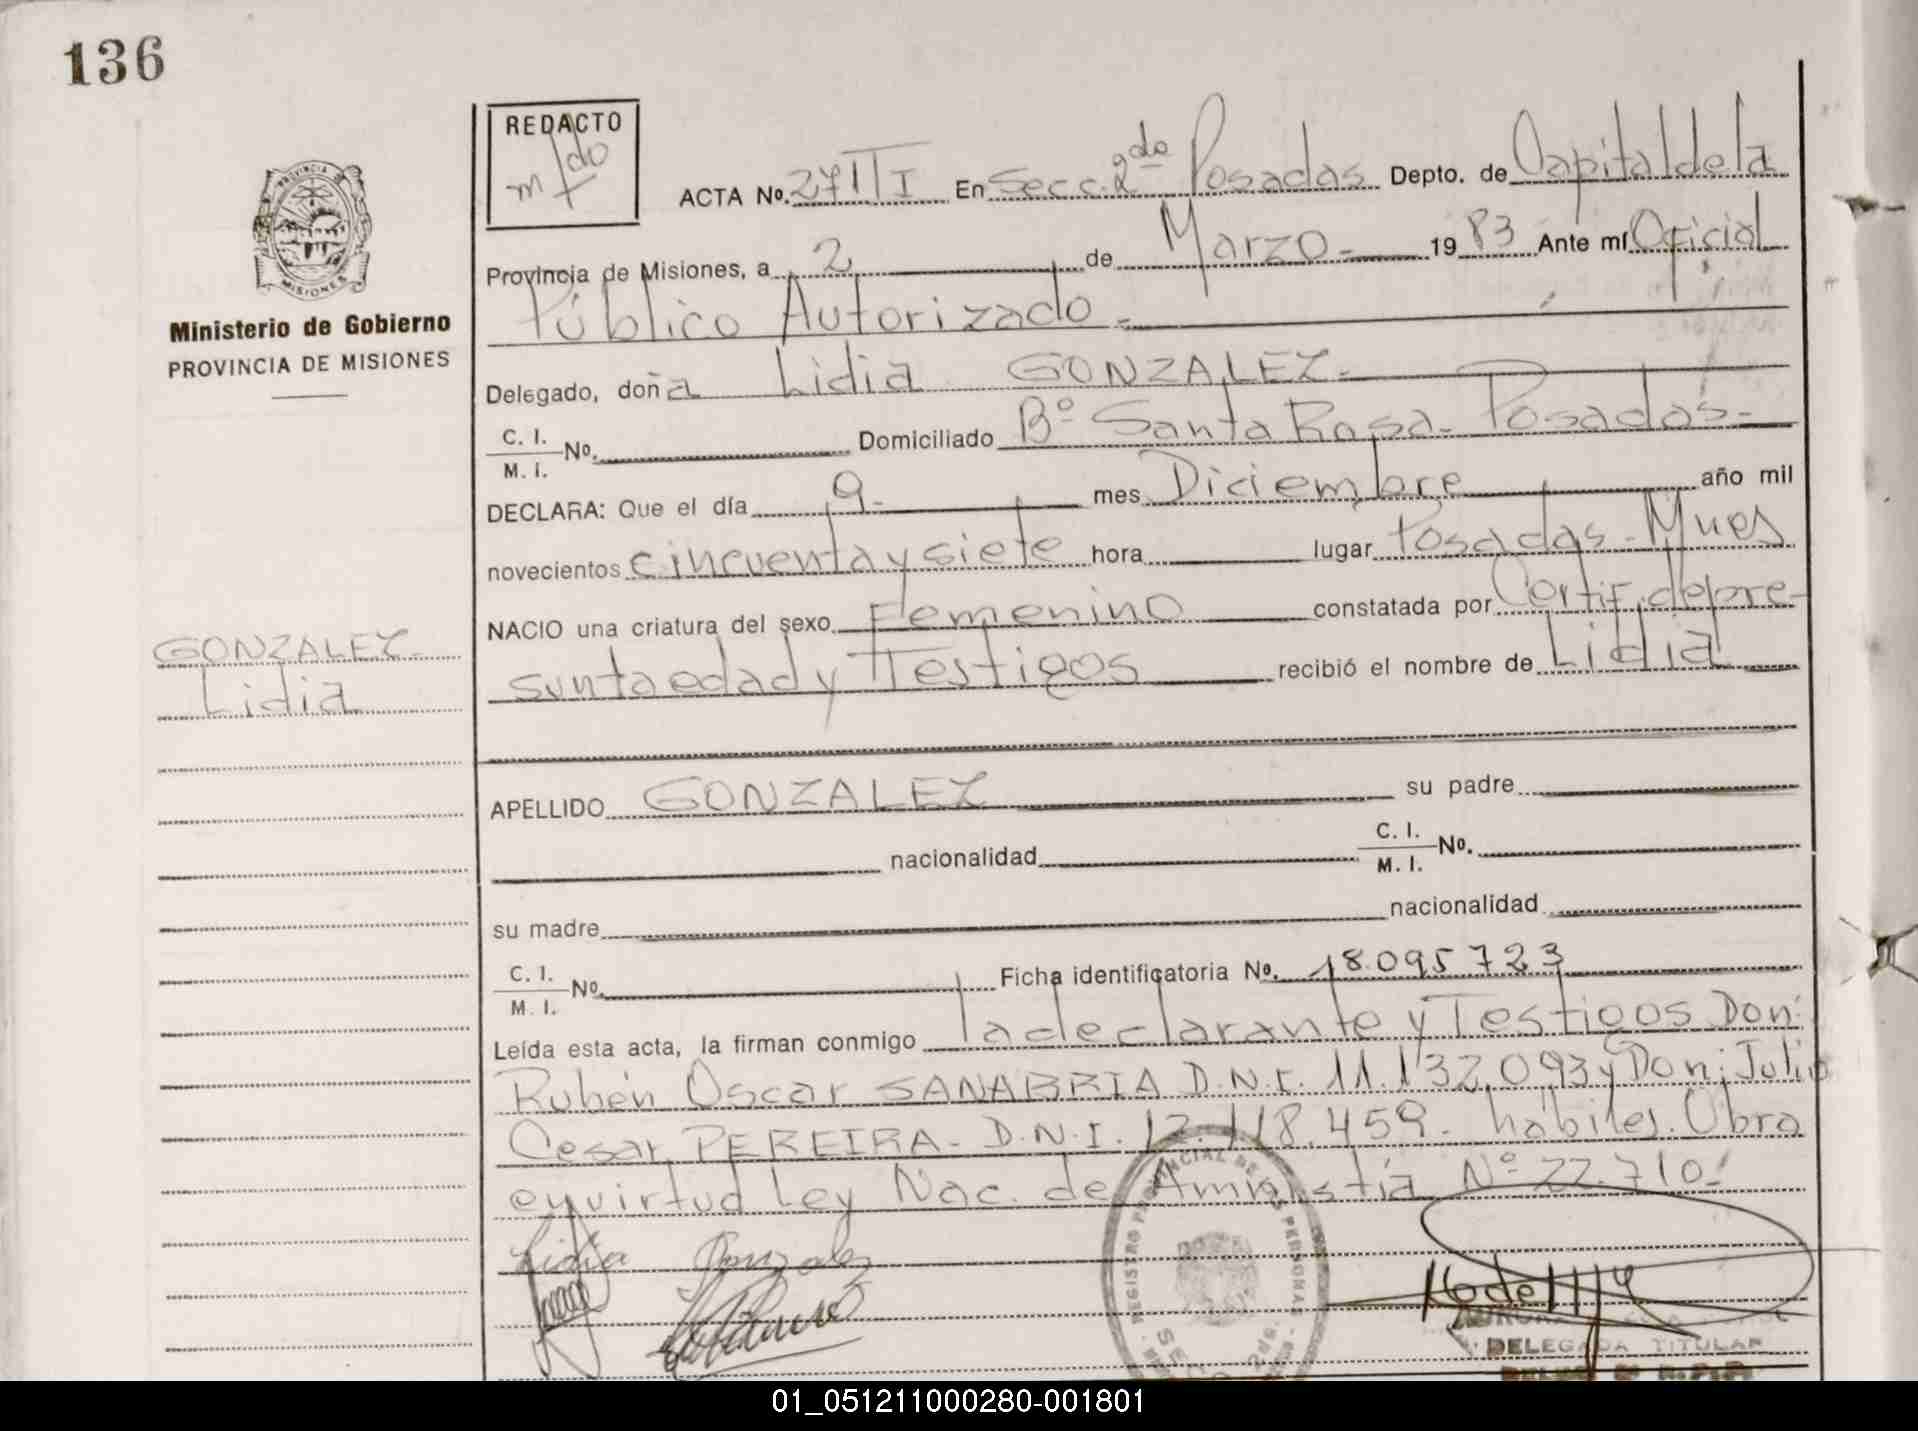 136
REDACTO
ACTA No. 271 T I En Secc. 2da Posadas Depto. de Capital de la
Provincia de Misiones, a 2 de Marzo - 1983 Ante mí Oficial
Público Autorizado -
Delegado, doña Lidia GONZALEZ -
C. I.
M. I. No. Domiciliado Bº Santa Rosa - Posadas -
DECLARA: Que el día 9 - mes Diciembre año mil
novecientos cincuenta y siete hora lugar Posadas - Mnes
NACIO una criatura del sexo Femenino constatada por Certif. de pre-
sunta edad y Testigos recibió el nombre de Lidia
APELLIDO GONZALEZ su padre
nacionalidad C. I.
M. I. No.
su madre nacionalidad
C. I.
M. I. No. Ficha identificatoria No. 18.095.723
Leída esta acta, la firman conmigo la declarante y Testigos Don:
Rubén Oscar SANABRIA D.N.I. 11.132.093 y Don: Julio
Cesar PEREIRA - D.N.I. 12.118.459 - hábiles. Obra
en virtud Ley Nac. de Amnistía Nº 22.710 -
Lidia Gonzalez
Ministerio de Gobierno
PROVINCIA DE MISIONES
GONZALEZ -
Lidia
PROVINCIA
MISIONES
REGISTRO PROVINCIAL DE LAS PERSONAS
DELEGADA TITULAR
01_051211000280-001801